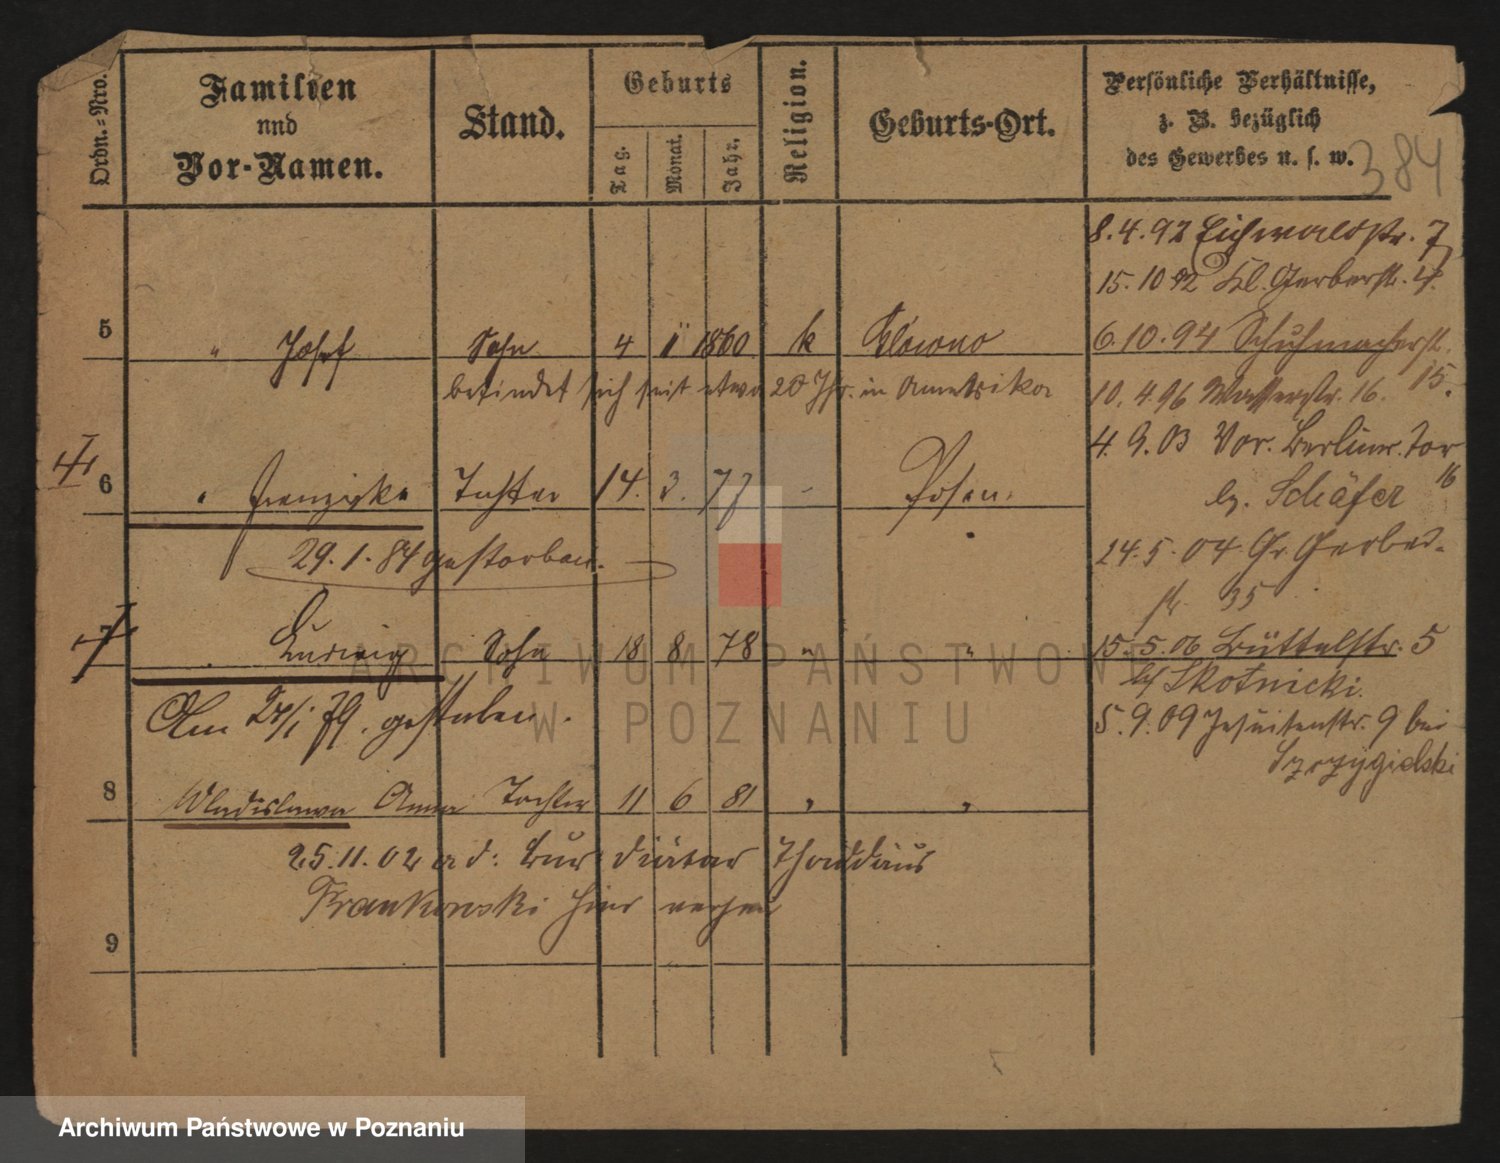 Ordn.-Nro.
Familien
und
Vor-Namen.
Stand.
Geburts
Tag.
Monat.
Jahr.
Religion.
Geburts-Ort.
Persönliche Verhältnisse,
z. B. bezüglich
des Gewerbes u. s. w.
384
8.4.92 Eichwaldstr. 7
15.10 92 Kl. Gerberstr. 4.
5 " Josef Sohn 4 1 1860 k
6.10.94 Schuhmacherstr.
15.
befindet sich seit etwa 20 Jhr. in Amerika
10.4.96 Wasserstr. 16.
4.9.03 Vor. Berliner Tor
16
b. Schäfer
6 " Franziska Tochter 14. 3. 77 Posen.
29.1.84 gestorben.
24.5.04 Gr. Gerber-
str. 35
7 Ludwig Sohn 18 8 78 " "
15.5.06 Büttelstr. 5
b/ Skotnicki.
Am 24/1 79. gestorben.
5.9.09 Jesuitenstr. 9 bei
8 Wladislawa Anna Tochter 11 6 81 " "
25.11.02 ad: Bur Diätar Thaddäus
Frankowski hier
9
ARCHIWUM PAŃSTWOWE
W POZNANIU
Archiwum Państwowe w Poznaniu